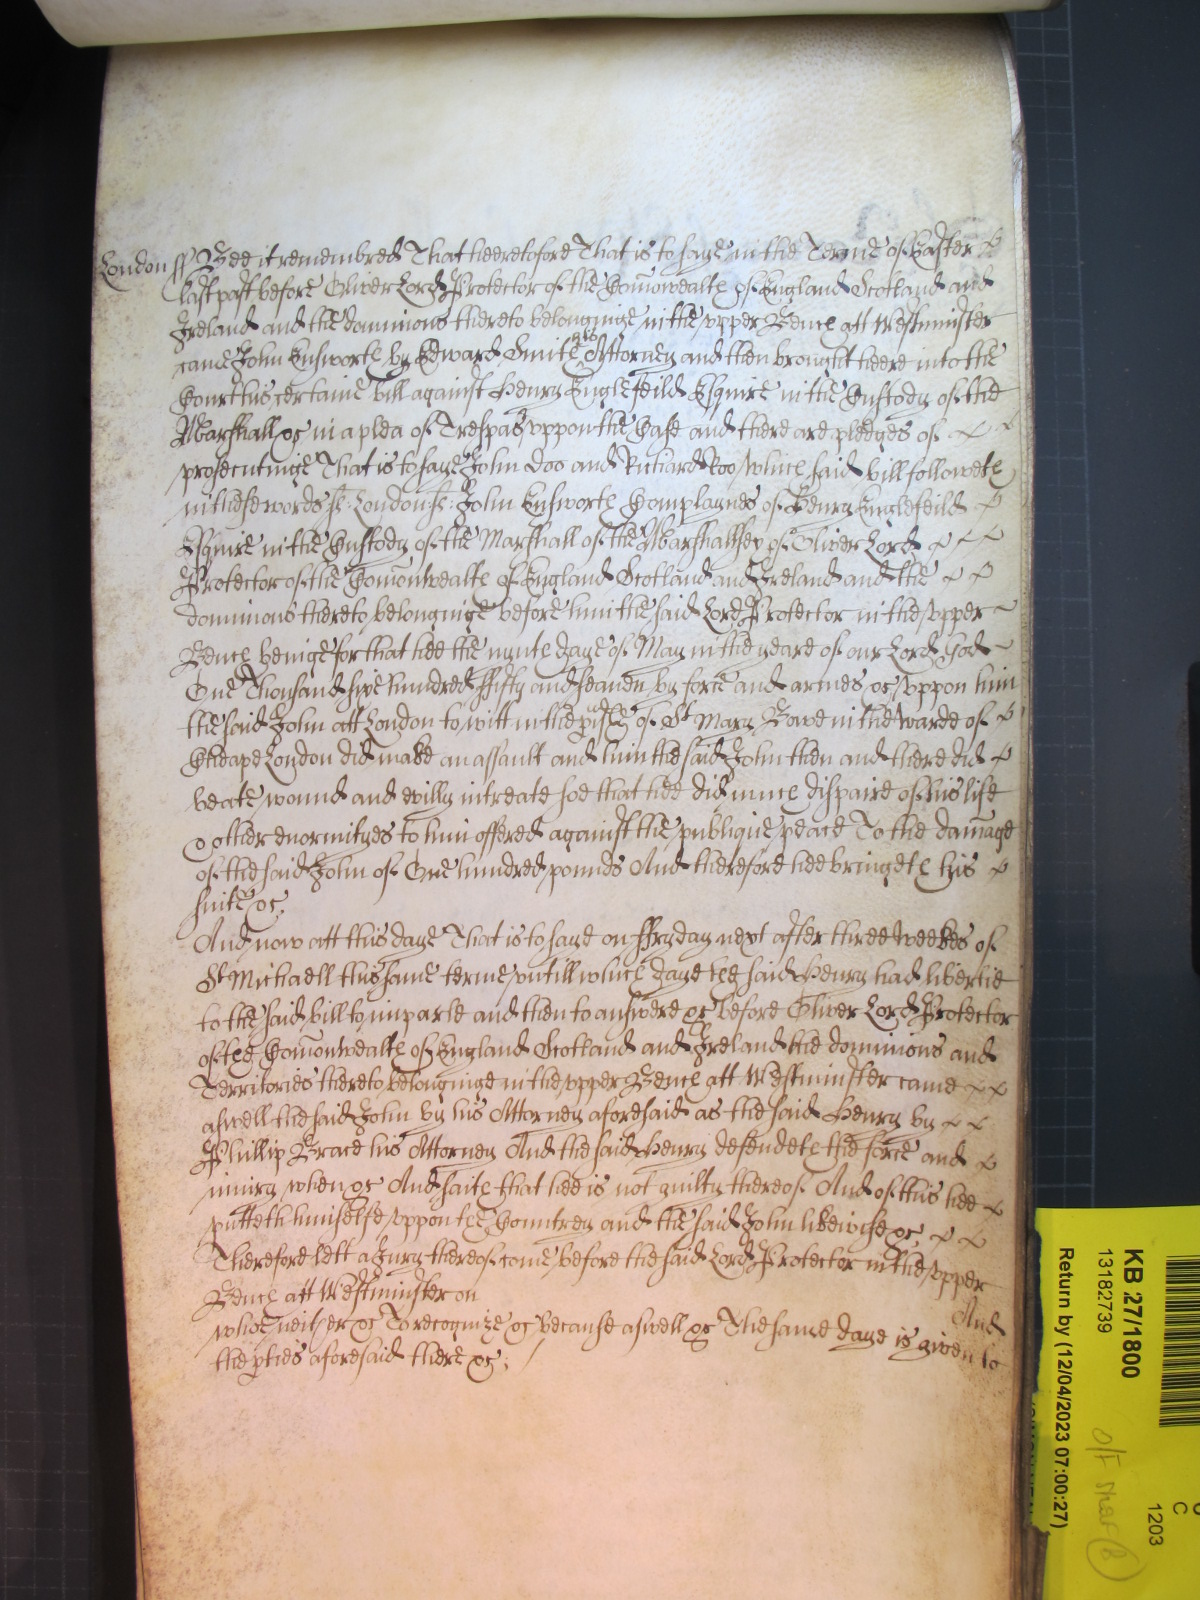 London ss Bee it remembred That heeretofore That is to saye in the Terme of Easter
last past before Oliver Lord Protector of the Com̄onwealth of England Scotland and
Ireland and the dominions thereto belonginge in the upper Bench att Westminster
came John Ensworth by Edward Smith his Attorney and then brought heere into the
Court his certaine bill against Henry Englefeild Esquire in the Custody of the
Marshall &c in a plea of Trespas uppon the Case and there are pledges of
prosecutinge That is to saye John Doo and Richard Roo which said bill followeth
in these words ss London ss John Ensworth Complaynes of Henry Englefeild
Esquire in the Custody of the Marshall of the Marshallsey of Oliver Lord
Protector of the Com̄onwealth of England Scotland and Ireland and the
dominions thereto belonginge before him the said Lord Protector in the upper
Bench beinge for that hee the nynte daye of May in the yeare of our Lord God
One Thousand sixe hundred ffifty and seaven by force and armes &c uppon him
the said John att London to witt in the pish of St Mary Bowe in the warde of
Cheape London did make an assault and him the said John then and there did
beate wound and evilly intreate soe that hee did much dispaire of his life
& other enormityes to him offered against the publique peace To the damage
of the said John of One hundred pounds And therefore hee bringeth his
suite &c.
And now att this daye That is to saye on ffryday next after three weekes of
St Michaell this same terme untill which daye the said Henry had libertie
to the said bill to imparle and then to answere &c before Oliver Lord Protector
of the Com̄onwealth of England Scotland and Ireland the dominions and
Territories thereto belonginge in the upper Bench att Westminster came
aswell the said John by his Attorney aforesaid as the said Henry by
Phillip Brace his Attorney And the said Henry defendeth the force and
iniury when &c And saith that hee is not guilty thereof And of this hee
putteth himselfe uppon the Countrey and the said John likewise &c.
Therefore lett a Jury thereof come before the said Lord Protector in the upper
Bench att Westminster on And
who neither &c To recognize &c because aswell &c The same daye is given to
the pties aforesaid there &c.
KB 27/1800
13182739
Return by (12/04/2023 07:00:27)
C
1203